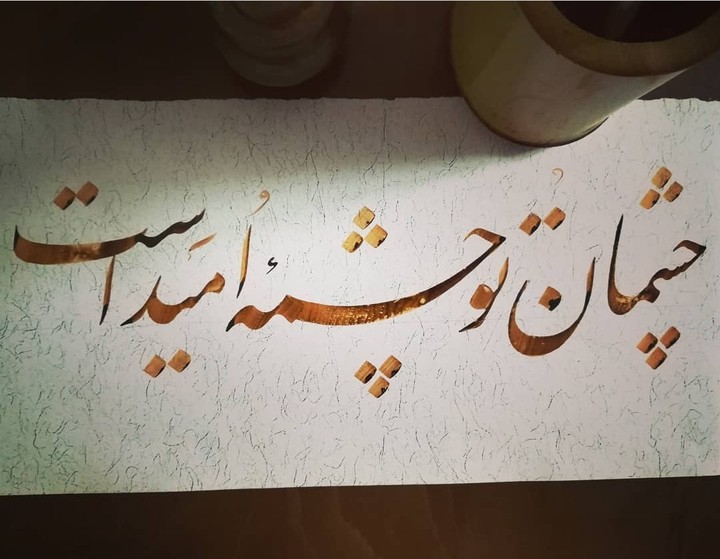 چشمان تو چشمهٔ اُمید است